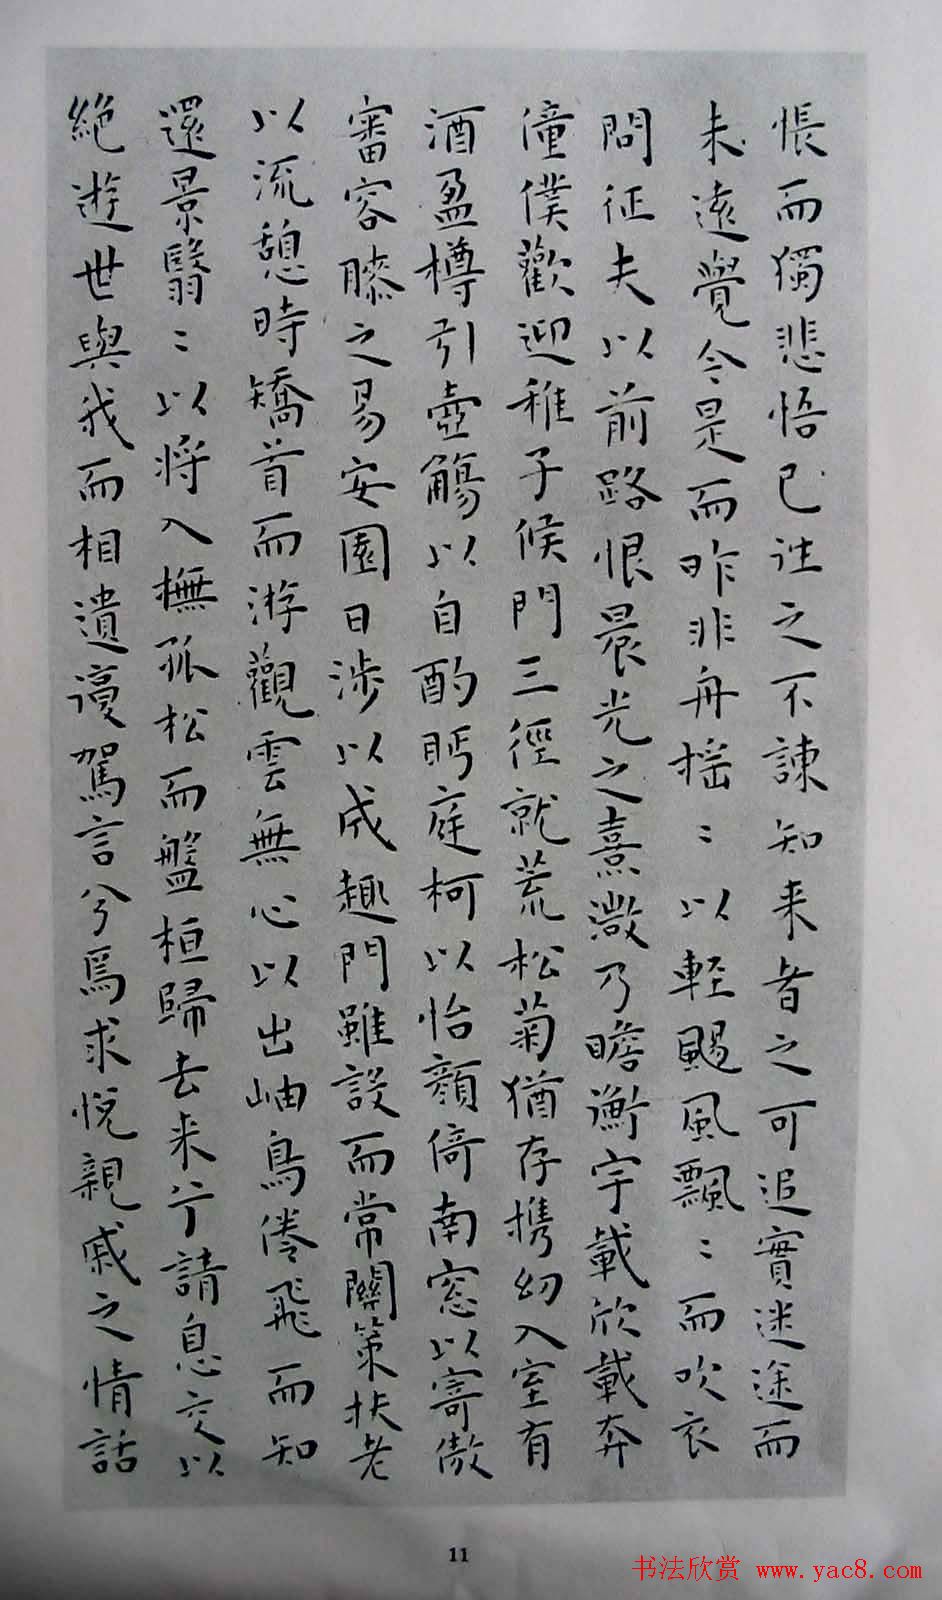 悵而獨悲悟已往之不諫知来者之可追實迷途而
未遠覺今是而昨非舟摇〻以輕颺風飄〻而吹衣
問征夫以前路恨晨光之熹微乃瞻衡宇載欣載奔
僮僕歡迎稚子候門三徑就荒松菊猶存携幼入室有
酒盈樽引壺觴以自酌眄庭柯以怡顔倚南窓以寄傲
審容膝之易安園日涉以成趣門雖設而常關策扶老
以流憩時矯首而游觀雲無心以出岫鳥倦飛而知
還景翳〻以将入撫孤松而盤桓歸去来兮請息交以
絶遊世與我而相遺復駕言兮焉求悅親戚之情話
11
书法欣赏 www.yac8.com